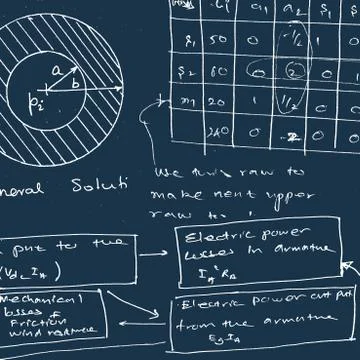 a
b
Pi
a₁ a₂ s₁
s₁ 50 0 -1/2 1 0
s₂ 60 0 2 0 0
m 20 1 1/2 0 0
240 0 -2 0 0
use this raw to
make next upper
raw to
neral Soluti
put to the
IA)
Electric power
losses in armature
IA² RA
Mechanical
losses of
Friction
wind
Electric power out put
from the armature
Eg IA